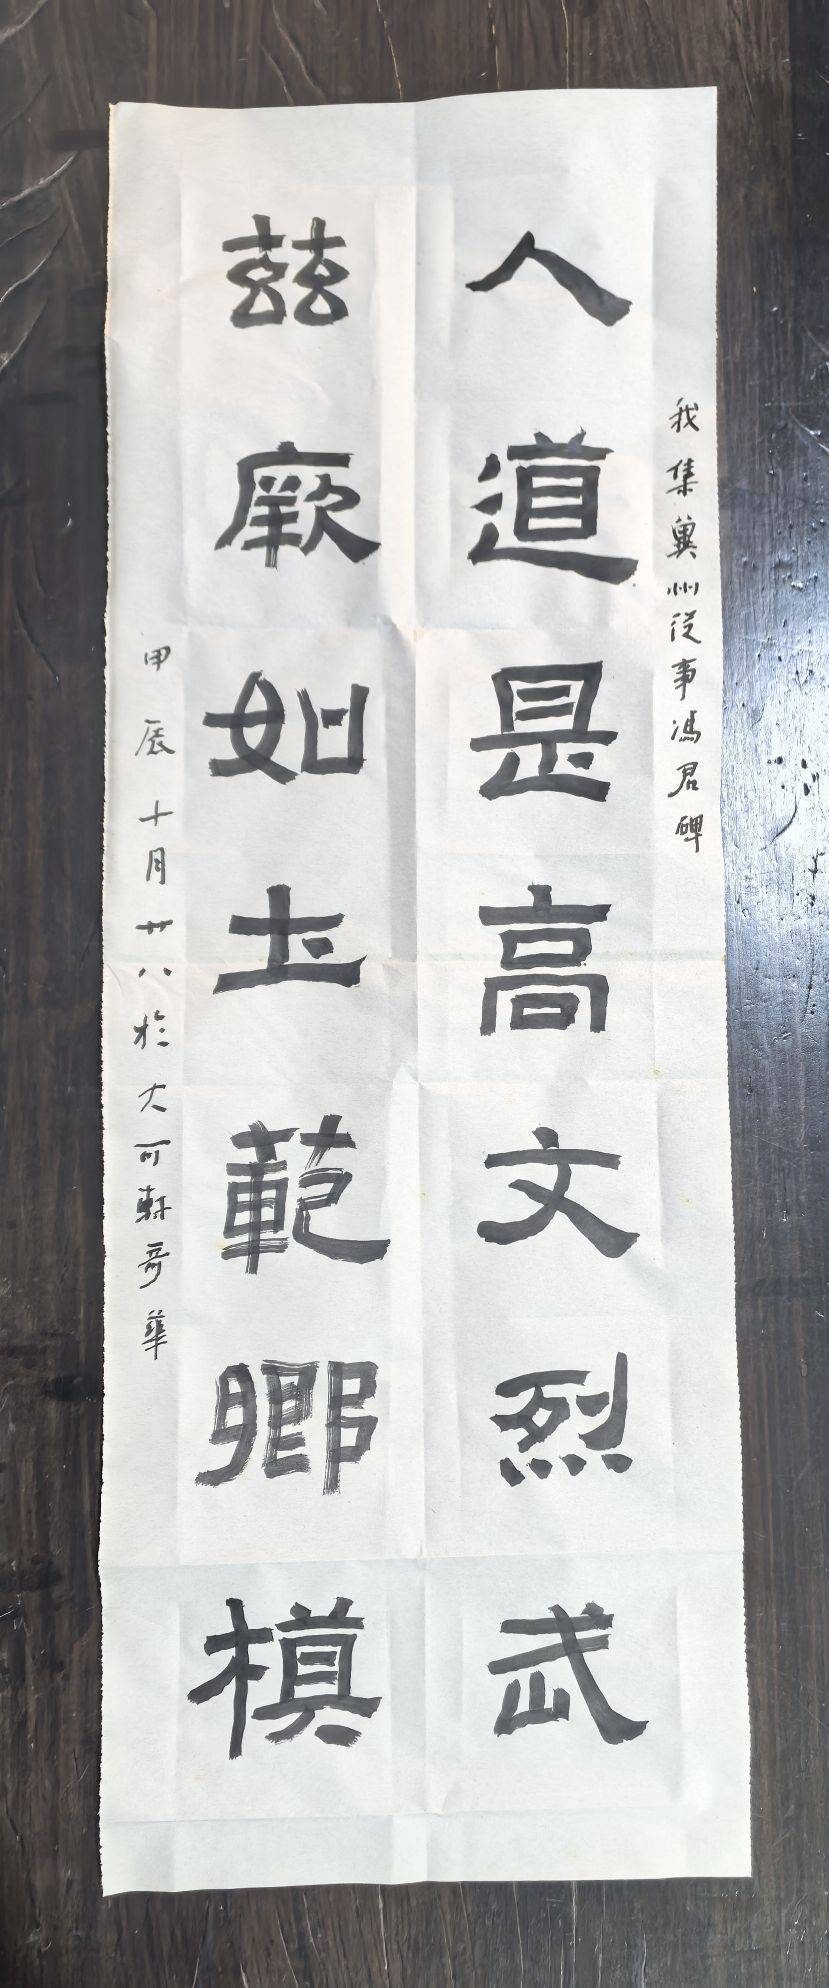 我集冀州從事馮君碑
人道是高文烈武
茲厥如土範鄉模
甲辰十月廿八於大可軒奇華